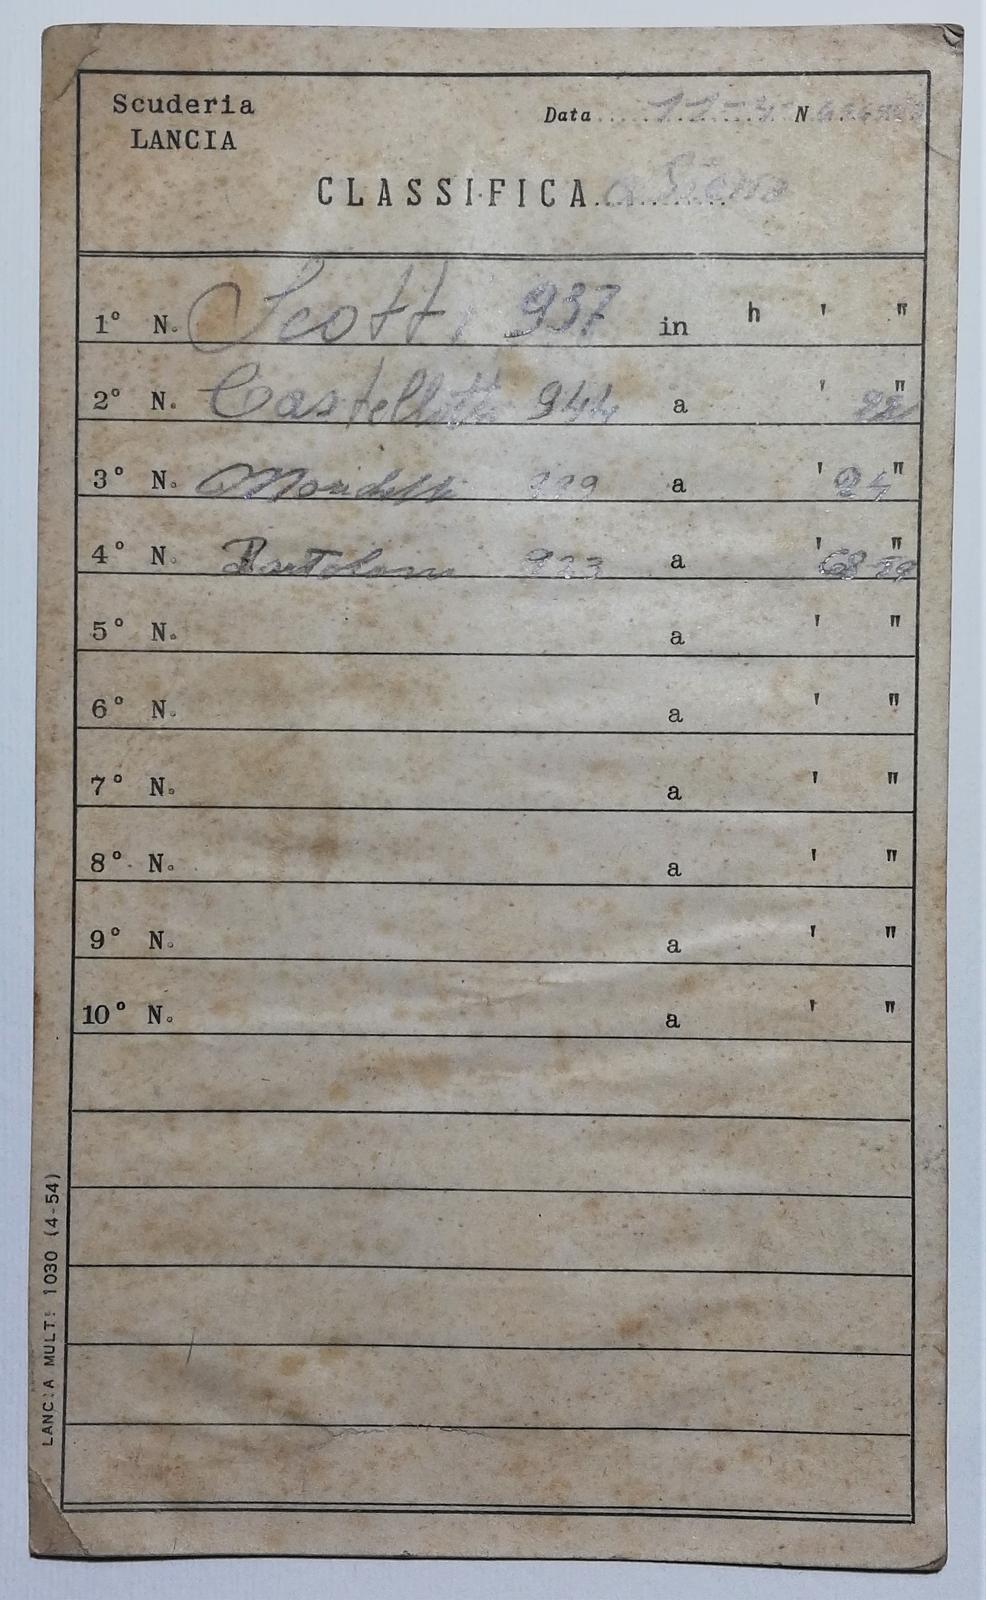 Scuderia
LANCIA
Data ............ N
CLASSIFICA.......... a Siena
1° N. Scotti 937 in h ' "
2° N. Castellotti 944 a ' "
3° N. a ' 24 "
4° N. Bartolomi 923 a ' "
5° N. a ' "
6° N. a ' "
7° N. a ' "
8° N. a ' "
9° N. a ' "
10° N. a ' "
LANCIA MULT: 1030 (4-54)